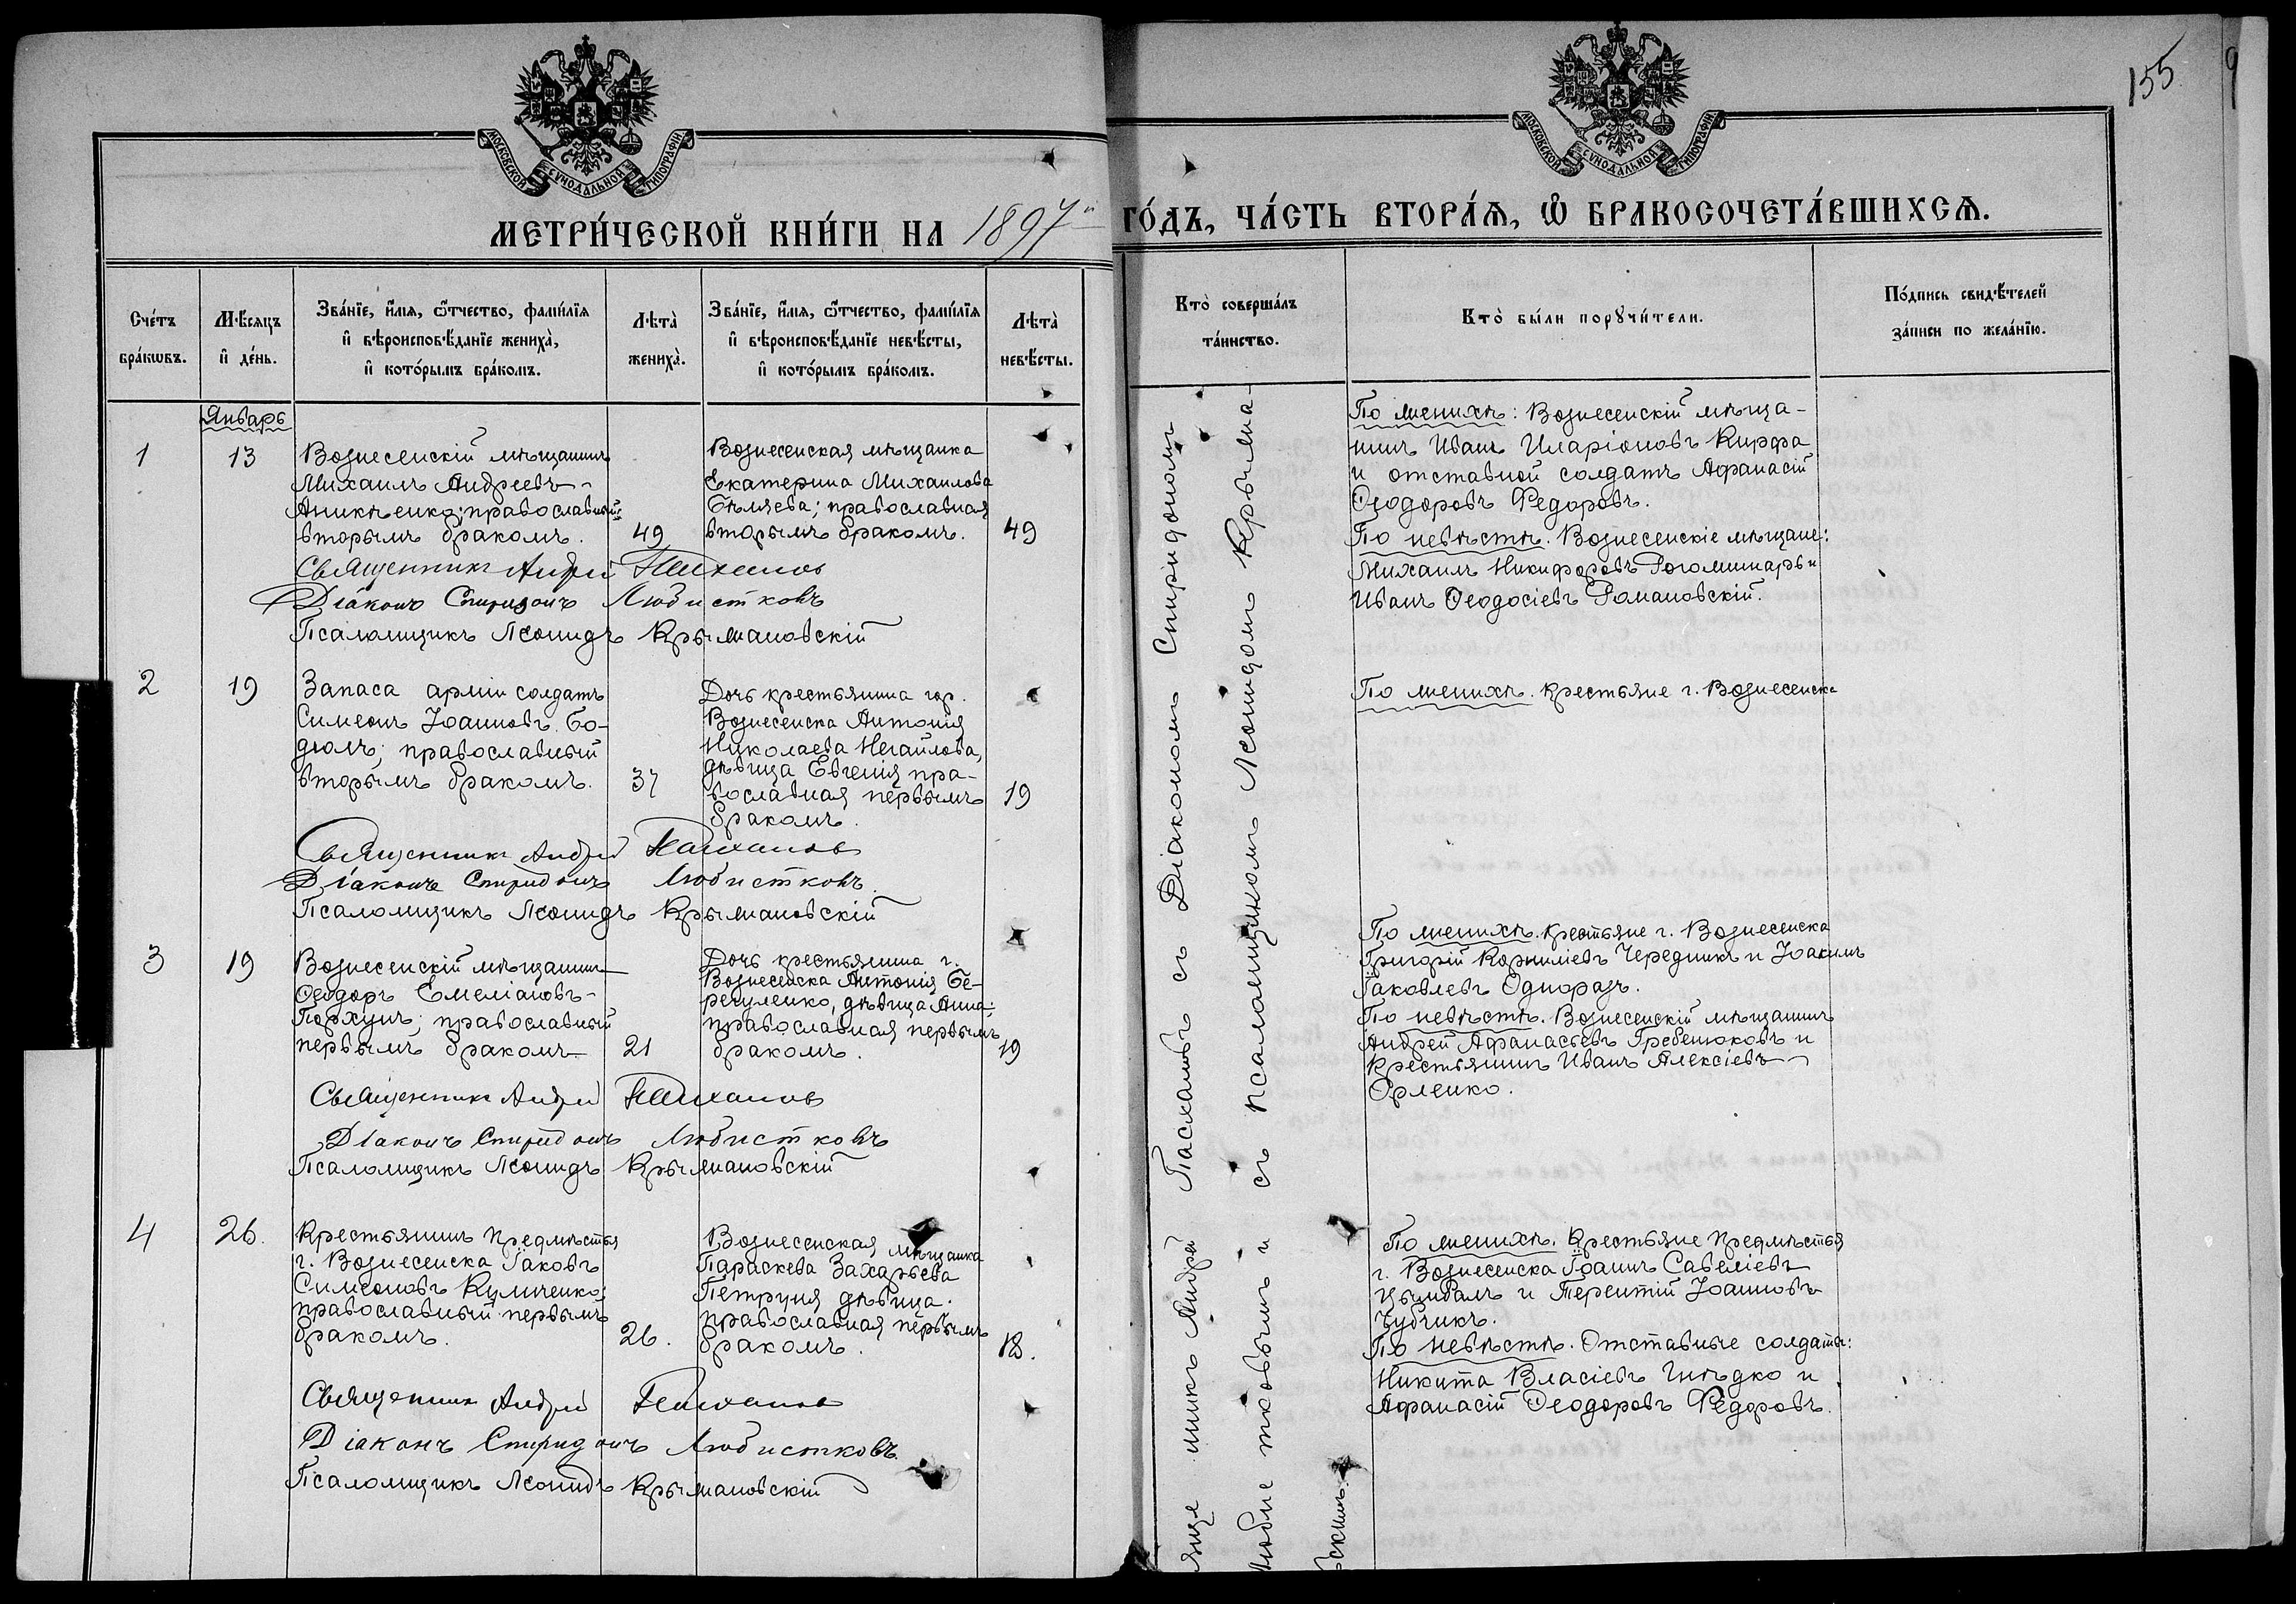 155
МОСКОВСКОЙ СѴНОДАЛЬНОЙ ТИПОГРАФІИ
МОСКОВСКОЙ СѴНОДАЛЬНОЙ ТИПОГРАФІИ
МЕТРИ́ЧЕСКОЙ КНИ́ГИ НА 1897й ГО́ДЪ, ЧА́СТЬ ВТОРА́Я, Ѡ БРАКОСОЧЕТА́ВШИХСЯ.
Сче́тъ бра́кѡвъ.
Мѣ́сяцъ и҆ де́нь.
Зва́нїе, и҆́мя, ѻ҆́тчество, фами́лїя
и҆ вѣроисповѣ́данїе жениха̀,
и҆ кото́рымъ бра́комъ.
Лѣта̀ жениха̀.
Зва́нїе, и҆́мя, ѻ҆́тчество, фами́лїя
и҆ вѣроисповѣ́данїе невѣ́сты,
и҆ кото́рымъ бра́комъ.
Лѣта̀ невѣ́сты.
Кто̀ соверша́лъ та́инство.
Кто̀ бы́ли порꙋчи́тели.
По́дпись свидѣ́телей
за́писи по жела́нїю.
Январь
1
13
Вознесенскій мѣщанинъ
Михаилъ Андреевъ
Аникѣенко; православный
вторымъ бракомъ.
49
Вознесенская мѣщанка
Екатерина Михаилова
Бѣляева; православная
вторымъ бракомъ.
49
По женихѣ: Вознесенскій мѣща-
нинъ Иванъ Иларіоновъ Кирфа
и отставной солдатъ Афанасій
Ѳеодоровъ Федоровъ.
По невѣстѣ. Вознесенскіе мѣщане:
Михаилъ Никифоровъ и
Иванъ Ѳеодосіевъ Романовскій.
Священникъ Андрей Пасхаловъ
Діаконъ Спиридонъ Любистковъ
Псаломщикъ Леонидъ Крыжановскій
2
19
Запаса арміи солдатъ
Симеонъ Іоанновъ Бо-
дюлъ; православный
вторымъ бракомъ.
37
Дочь крестьянина гор.
Вознесенска Антонія
Николаева Негайлова,
дѣвица Евгенія пра-
вославная первымъ
бракомъ.
19
По женихѣ. крестьяне г. Вознесенска
Священникъ Андрей Пасхаловъ
Діаконъ Спиридонъ Любистковъ.
Псаломщикъ Леонидъ Крыжановскій
3
19
Вознесенскій мѣщанинъ
Ѳеодоръ Емеліановъ
Порхунъ; православный
первымъ бракомъ
21
Дочь крестьянина г.
Вознесенска Антонія Бе-
регуленко, дѣвица Анна;
православная первымъ
бракомъ.
19
По женихѣ. крестьяне г. Вознесенска
Григорій Корниліевъ Чередникъ и Іоакимъ
Іаковлевъ Однорогъ.
По невѣстѣ. Вознесенскій мѣщанинъ
Андрей Афанасьевъ Гребенюковъ и
крестьянинъ Иванъ Алексіевъ
Орленко.
Священникъ Андрей Пасхаловъ
Діаконъ Спиридонъ Любистковъ
Псаломщикъ Леонидъ Крыжановскій
4
26.
Крестьянинъ предмѣстья
г. Вознесенска Іаковъ
Симеоновъ
православный первымъ
бракомъ.
26.
Вознесенская мѣщанка
Параскева Захарьева
Петруня дѣвица.
православная первымъ
бракомъ.
18.
По женихѣ. Крестьяне предмѣстья
г. Вознесенска Іоаннъ Савеліевъ
Цымбалъ и Терентій Іоанновъ
Чубчикъ.
По невѣстѣ. Отставные солдаты:
Никита Власіевъ Гнѣдко и
Афанасій Ѳеодоровъ Федоровъ.
Священникъ Андрей Пасхаловъ
Діаконъ Спиридонъ Любистковъ.
Псаломщикъ Леонидъ Крыжановскій
никъ Андрей Пасхаловъ съ Діакономъ Спиридономъ
Любистковымъ и съ псаломщикомъ Леонидомъ Крыжа-
вскимъ.